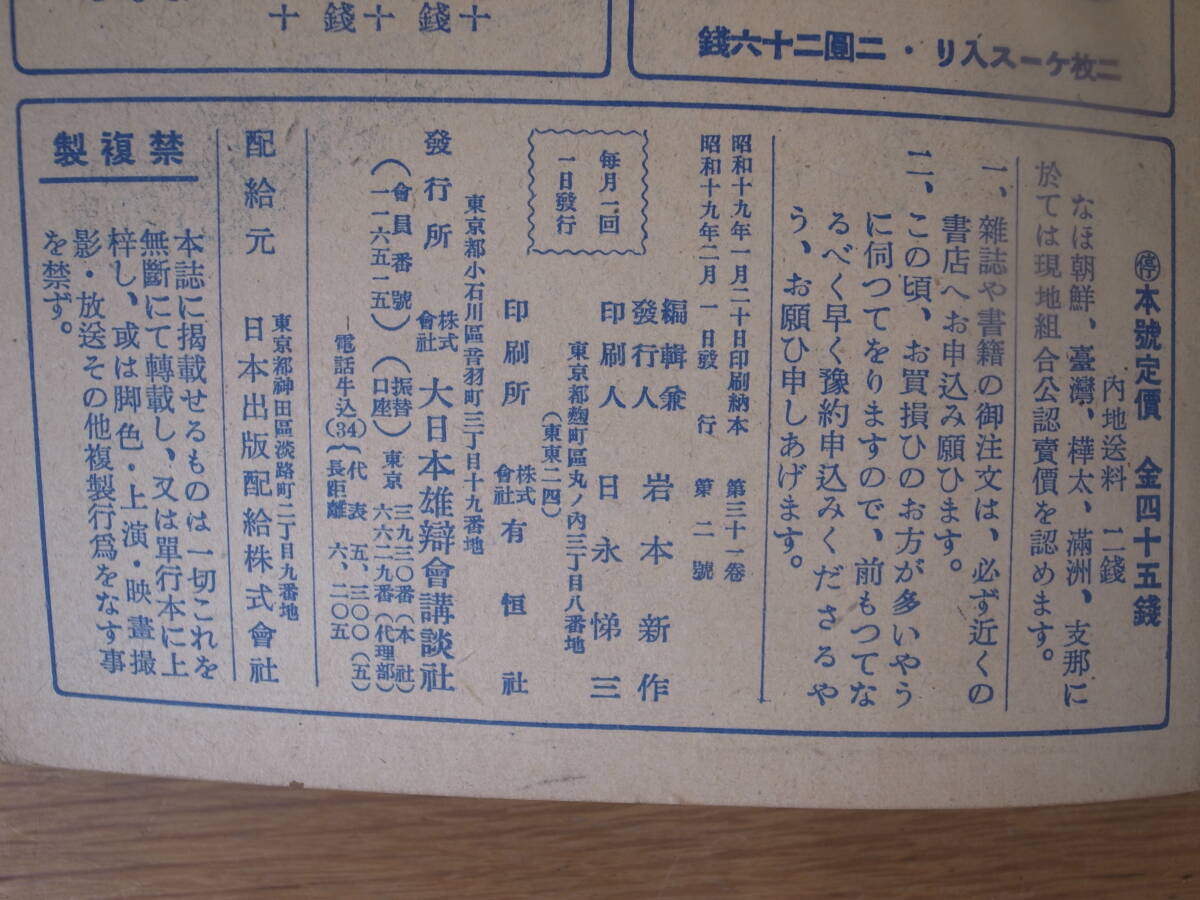 二枚ケース入り・二圓二十六錢
十錢
十錢
十
㊡本號定價 金四十五錢
內地送料 二錢
なほ朝鮮、臺灣、樺太、滿洲、支那に
於ては現地組合公認賣價を認めます。
一、雜誌や書籍の御注文は、必ず近くの
書店へお申込み願ひます。
二、この頃、お買損ひのお方が多いやう
に伺つてをりますので、前もつてな
るべく早く豫約申込みくださるや
う、お願ひ申しあげます。
昭和十九年一月二十日印刷納本 第三十一卷
昭和十九年二月一日發行 第二號
每月一回
一日發行
編輯兼
發行人 岩本新作
印刷人 日永悌三
東京都麴町區丸ノ內三丁目八番地
(東東二四)
印刷所 株式會社 有恒社
東京都小石川區音羽町三丁目十九番地
發行所 株式會社 大日本雄辯會講談社
(會員番號一一六五一五) (振替口座) 東京 三九三〇番(本社) 六六二九番(代理部)
電話牛込(34) 代表 五、三〇〇(五) 長距離 六、二〇五
配給元 東京都神田區淡路町二丁目九番地
日本出版配給株式會社
禁複製
本誌に揭載せるものは一切これを
無斷にて轉載し、又は單行本に上
梓し、或は脚色・上演・映畫撮
影・放送その他複製行爲をなす事
を禁ず。